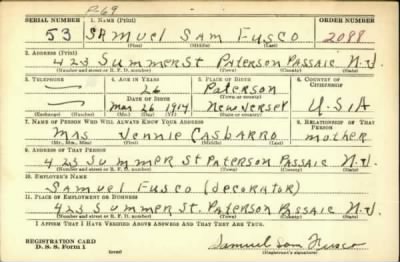 P-69
SERIAL NUMBER 1. NAME (Print) ORDER NUMBER
53 SAmuel Sam Fusco 2088
(First) (Middle) (Last)
2. ADDRESS (Print)
423 Summer St Paterson Passaic N.J.
(Number and street or R. F. D. number) (Town) (County) (State)
3. TELEPHONE 4. AGE IN YEARS 5. PLACE OF BIRTH 6. COUNTRY OF CITIZENSHIP
26 Paterson
DATE OF BIRTH (Town or county)
Mar 26 1914 New Jersey U.S.A
(Exchange) (No.) (Mo.) (Day) (Yr.) (State or country)
7. NAME OF PERSON WHO WILL ALWAYS KNOW YOUR ADDRESS 8. RELATIONSHIP OF THAT PERSON
Mrs Jennie Casbarro mother
(Mr., Mrs., Miss) (First) (Middle) (Last)
9. ADDRESS OF THAT PERSON
423 Summer St Paterson Passaic N.J.
(Number and street or R. F. D. number) (Town) (County) (State)
10. EMPLOYER'S NAME
Samuel Fusco (decorator)
11. PLACE OF EMPLOYMENT OR BUSINESS
423 Summer St. Paterson Passaic N.J.
(Number and street or R. F. D. number) (Town) (County) (State)
I AFFIRM THAT I HAVE VERIFIED ABOVE ANSWERS AND THAT THEY ARE TRUE.
REGISTRATION CARD
D. S. S. Form 1 (over) Samuel Sam Fusco
(Registrant's signature)